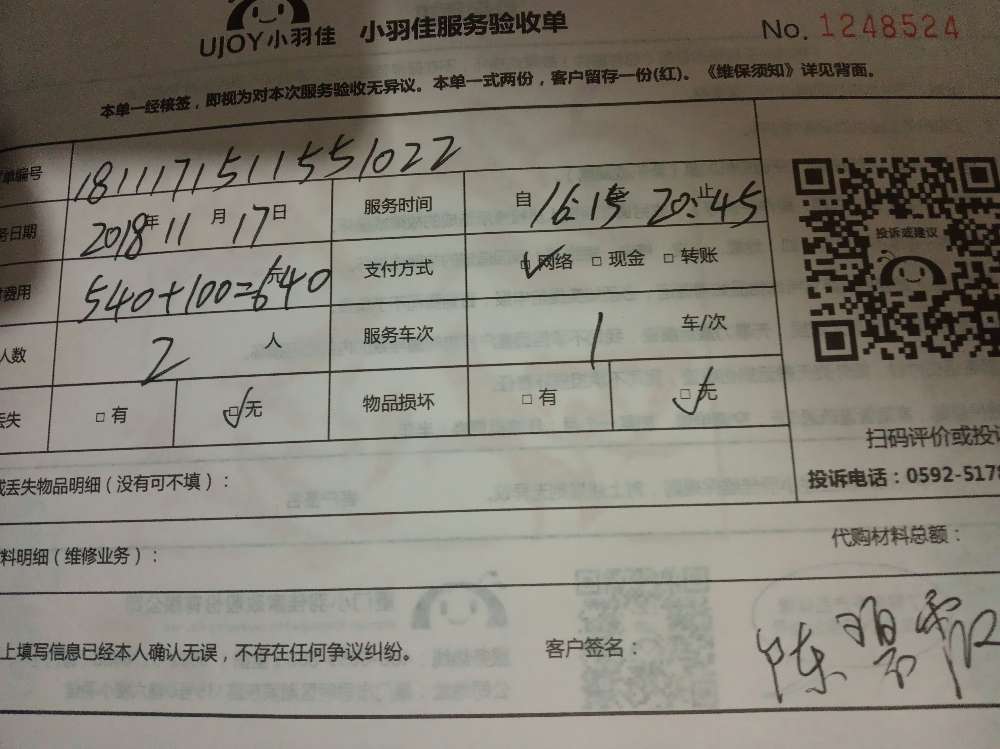 UJOY小羽佳 小羽佳服务验收单 No. 1248524
本单一经核签，即视为对本次服务验收无异议。本单一式两份，客户留存一份(红)。《维保须知》详见背面。
单编号 1811171511551022
务日期 2018年11月17日 服务时间 自16:15至20:45止
费用 540+100=640元 支付方式 网络 □ 现金 □ 转账
人数 2人 服务车次 1 车/次
投诉或建议
丢失 □ 有 □ 无 物品损坏 □ 有 □ 无
扫码评价或投诉
丢失物品明细（没有可不填）：
投诉电话：0592-5178
料明细（维修业务）：
代购材料总额：
上填写信息已经本人确认无误，不存在任何争议纠纷。 客户签名： 陈